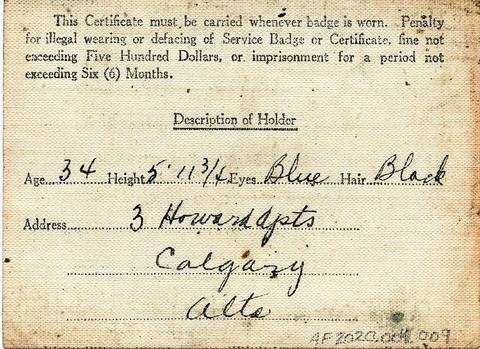 This Certificate must be carried whenever badge is worn. Penalty
for illegal wearing or defacing of Service Badge or Certificate, fine not
exceeding Five Hundred Dollars, or imprisonment for a period not
exceeding Six (6) Months.
Description of Holder
Age 34 Height 5' 11 3/4 Eyes Blue Hair Black
Address 3 Howard Apts
Calgary
Alta
AF2020.004.009